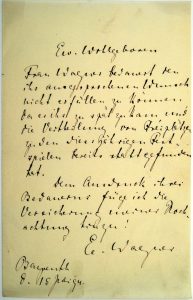 Ew. Wohlgeboren
Frau Wagner bedauert den
ihr ausgesprochenen Wunsch
nicht erfüllen zu können,
da es ihr zu spät zukam und
die Vertheilung von Freiplätzen
zu den diesjährigen Fest-
spielen bereits stattgefunden
hat.
Dem Ausdruck ihres
Bedauerns füge ich die
Versicherung meiner Hoch-
achtung bei
E. Wagner
Bayreuth
d. 15